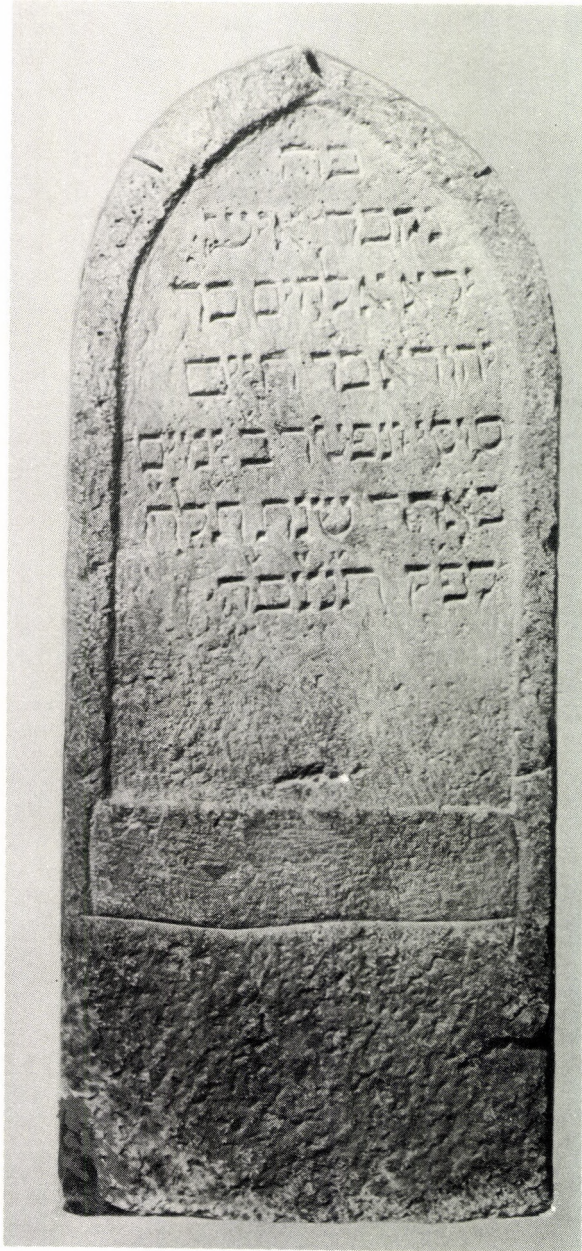 פה
נקבר איש
ירא אלקים כר
יהודא בר חיים
ונפטר ב ימים
שנת תקלה
לפק תנצבה